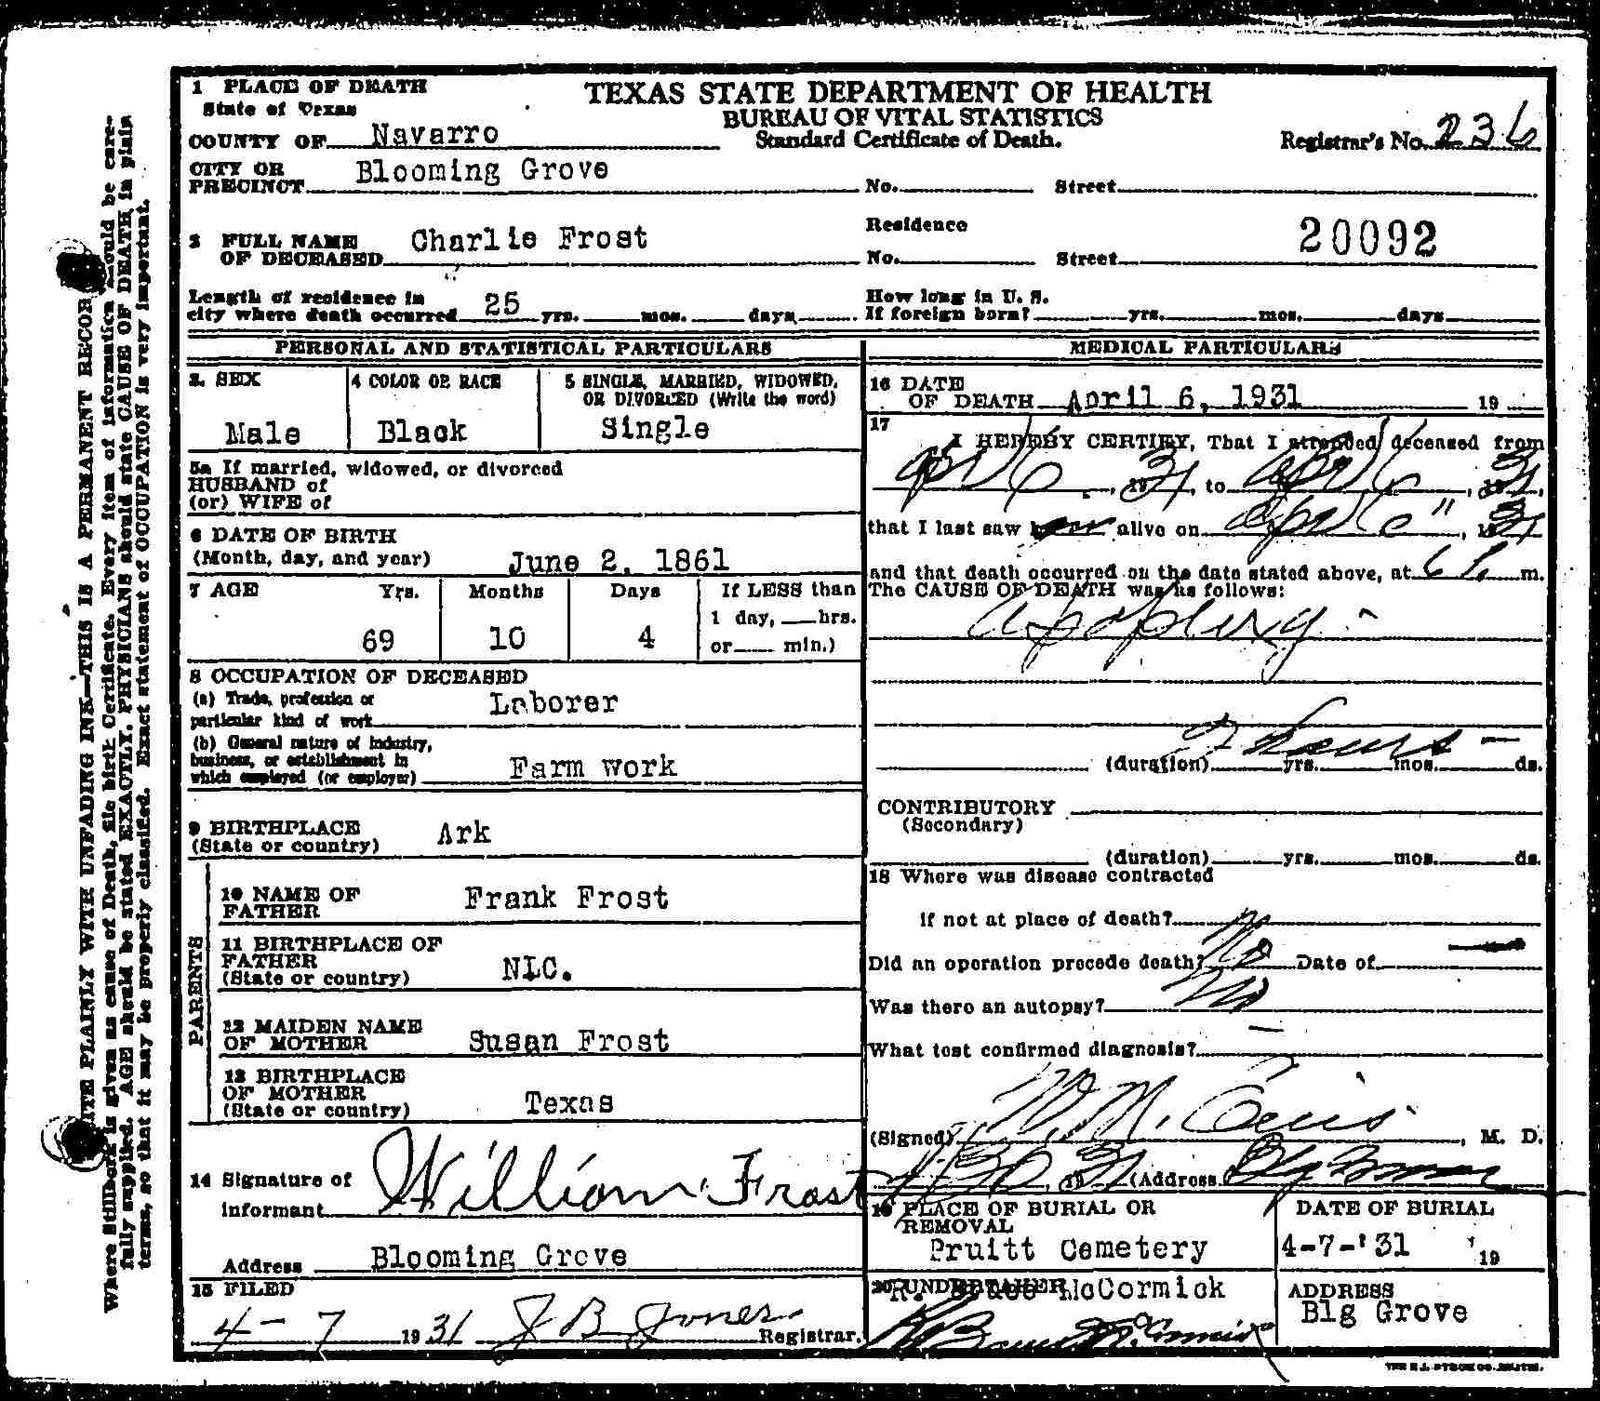 1 PLACE OF DEATH
State of Texas
TEXAS STATE DEPARTMENT OF HEALTH
BUREAU OF VITAL STATISTICS
Standard Certificate of Death.
COUNTY OF Navarro
Registrar's No. 236
CITY OR PRECINCT Blooming Grove
No. Street
2 FULL NAME OF DECEASED Charlie Frost
Residence
No. Street
20092
Length of residence in city where death occurred 25 yrs. mos. days
How long in U. S. If foreign born? yrs. mos. days
PERSONAL AND STATISTICAL PARTICULARS
3. SEX
Male
4 COLOR OR RACE
Black
5 SINGLE, MARRIED, WIDOWED, OR DIVORCED (Write the word)
Single
5a If married, widowed, or divorced
HUSBAND of
(or) WIFE of
6 DATE OF BIRTH
(Month, day, and year) June 2, 1861
7 AGE Yrs. Months Days If LESS than
1 day, hrs.
69 10 4 or min.)
8 OCCUPATION OF DECEASED
(a) Trade, profession or
particular kind of work Laborer
(b) General nature of industry,
business, or establishment in
which employed (or employer) Farm work
9 BIRTHPLACE
(State or country) Ark
PARENTS
10 NAME OF FATHER Frank Frost
11 BIRTHPLACE OF FATHER
(State or country) N.C.
12 MAIDEN NAME OF MOTHER Susan Frost
13 BIRTHPLACE OF MOTHER
(State or country) Texas
14 Signature of
informant William Frost
Address Blooming Grove
15 FILED
4-7 1931 J B Jones Registrar.
MEDICAL PARTICULARS
16 DATE OF DEATH April 6, 1931 19
17
I HEREBY CERTIFY, That I attended deceased from
Apr 6, 1931, to Apr 6, 1931,
that I last saw alive on Apr 6", 1931
and that death occurred on the date stated above, at 6 P. m.
The CAUSE OF DEATH was as follows:
Apoplexy
2 hours
(duration) yrs. mos. ds.
CONTRIBUTORY
(Secondary)
(duration) yrs. mos. ds.
18 Where was disease contracted
if not at place of death?
Did an operation precede death? No Date of
Was there an autopsy? No
What test confirmed diagnosis?
(Signed) W. M. , M. D.
1931 (Address
19 PLACE OF BURIAL OR REMOVAL
Pruitt Cemetery
DATE OF BURIAL
4-7-'31 19
20 UNDERTAKER
R. Bruce McCormick
R Bruce McCormick
ADDRESS
Blg Grove
WRITE PLAINLY WITH UNFADING INK—THIS IS A PERMANENT RECORD
Where Stillborn is given as cause of Death, file birth Certificate. Every item of information should be care-
fully supplied. AGE should be stated EXACTLY. PHYSICIANS should state CAUSE OF DEATH in plain
terms, so that it may be properly classified. Exact statement of OCCUPATION is very important.